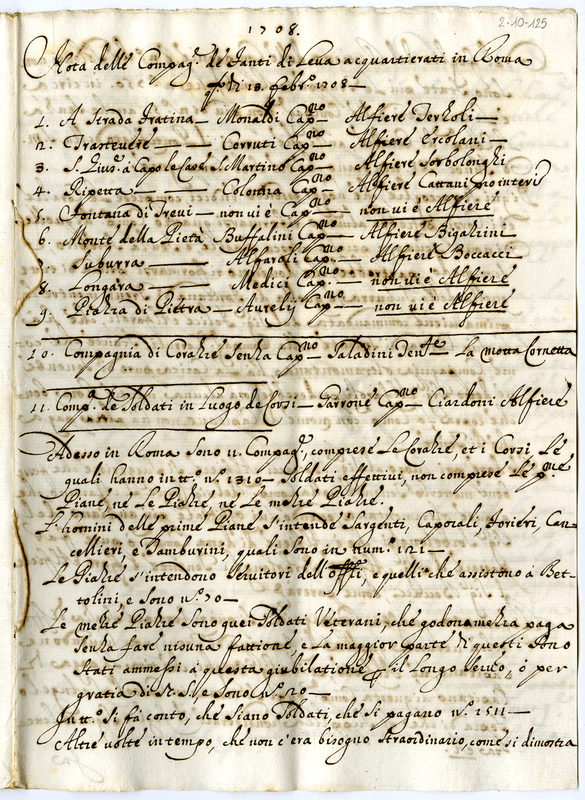 2-10-125
1708.
Nota delle Compag.e de Fanti di Leva acquartierati in Roma
p.o di 18. Febr.o 1708 —
1. A Strada Fratina — Monaldi Cap.no — Alfiere Terholi —
2. Trastevere — Cerruti Cap.no — Alfiere Ercolani —
3. S. a Capo le Case S. Martino Cap.no Alfiere Sorbolonghi
4. Ripetta — Colonna Cap.no — Alfiere Cattani pro interi
5. Fontana di Trevi — non vi è Cap.no — non vi è Alfiere
6. Monte della Pietà Buffalini Cap.no — Alfiere Bigazzini
Suburra — Alfaroli Cap.no — Alfiere Boccacci
8. Longara — Medici Cap.no — non vi è Alfiere
9. Piazza di Pietra — Aurelij Cap.no — non vi è Alfiere
10. Compagnia di Corazze senza Cap.no — Paladini Ten.te — La mova Cornetta
11. Comp.a de Soldati in Luogo de Corsi — Garrone Cap.no — Ciardoni Alfiere
Adesso in Roma sono 11. Compag.e, comprese Le Corazze, et i Corsi, Le
quali hanno in tt.o n.o 1310 — Soldati effettivi, non comprese Le p.me
Piane, ne Le Piazze, ne Le meze Piazze.
P. homini delle prime Piane s'intende Sargenti, Caporali, Forieri, Can-
cellieri, e Tamburini, quali sono in num.o 121 —
Le Piazze s'intendono Servitori dell' , e quelli che assistono a Bet-
tolini, e sono n.o 70 —
Le meze Piazze sono quei Soldati Veterani, che godono meza paga
senza fare niuna fattione, e La maggior parte di questi sono
stati ammessi a questa giubilatione p il Longo Servo, ò per
gratia di N. S. e sono n.o 20 —
In tt.o si fa conto, che siano Soldati, che si pagano n.o 1511 —
Altre volte in tempo, che non c'era bisogno straordinario, come si dimostra